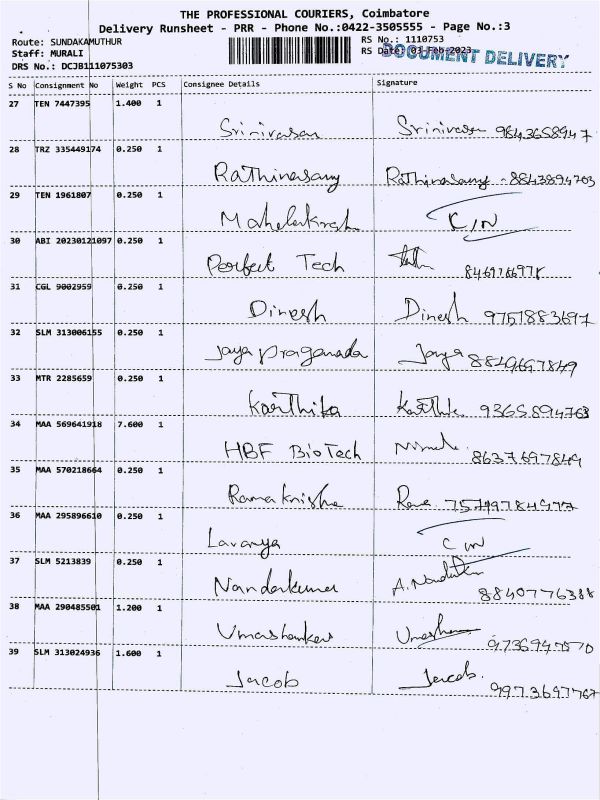 THE PROFESSIONAL COURIERS, Coimbatore
Delivery Runsheet - PRR - Phone No.:0422-3505555 - Page No.:3
Route: SUNDAKAMUTHUR RS No.: 1110753
Staff: MURALI RS Date: 03-Feb-2023
DOCUMENT DELIVERY
DRS No.: DCJB111075303
S No Consignment No Weight PCS Consignee Details Signature
27 TEN 7447395 1.400 1
Srinivasan Srinivasan 9843658947
28 TRZ 335449174 0.250 1
Rathinasamy Rathinasamy - 8843894703
29 TEN 1961807 0.250 1
C/N
30 ABI 20230121097 0.250 1
Perfect Tech
31 CGL 9002959 0.250 1
Dinesh Dinesh 9751883697
32 SLM 313006155 0.250 1
Jaya Jaya 8849697849
33 MTR 2285659 0.250 1
Karthika 9365894763
34 MAA 569641918 7.600 1
HBF BioTech 8637697849
35 MAA 570218664 0.250 1
Ramakrishna
36 MAA 295896610 0.250 1
Lavanya C/N
37 SLM 5213839 0.250 1
Nandakumar A. 8840776388
38 MAA 290485501 1.200 1
Umashankar
39 SLM 313024936 1.600 1
Jacob Jacob. 9973697767